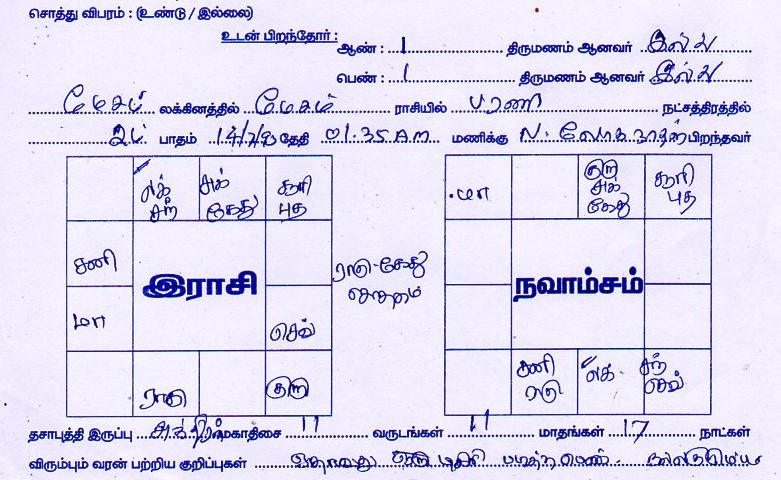 சொத்து விபரம் : (உண்டு / இல்லை)
உடன் பிறந்தோர் : ஆண் : 1 திருமணம் ஆனவர் இல்லை
பெண் : 1 திருமணம் ஆனவர் இல்லை
மேசம் லக்கினத்தில் மேசம் ராசியில் பரணி நட்சத்திரத்தில்
2ம் பாதம் தேதி 01.35 Am மணிக்கு N. லோகநாதன் பிறந்தவர்
லக் சந் சுக் கேது சூரி புத
குரு சுக் கேது சூரி புத
மா
சனி
இராசி
ராகு-கேது
நவாம்சம்
மா
செவ்
ராகு குரு
சனி ராகு லக் சந் செவ்
தசாபுத்தி இருப்பு சுக்கிரன் மகாதிசை 11 வருடங்கள் 11 மாதங்கள் 17 நாட்கள்
விரும்பும் வரன் பற்றிய குறிப்புகள் ஏதாவது டிகிரி பெண்